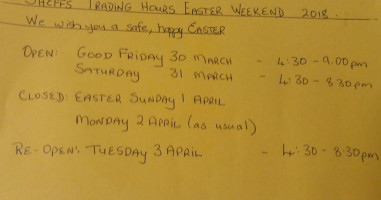 SHEFFS TRADING HOURS EASTER WEEKEND 2018.
We wish you a safe, happy EASTER
OPEN: GOOD FRIDAY 30 MARCH - 4:30 - 9.00pm
SATURDAY 31 MARCH - 4:30 - 8:30pm
CLOSED: EASTER SUNDAY 1 APRIL
MONDAY 2 APRIL (as usual)
RE-OPEN: TUESDAY 3 APRIL - 4:30 - 8:30pm